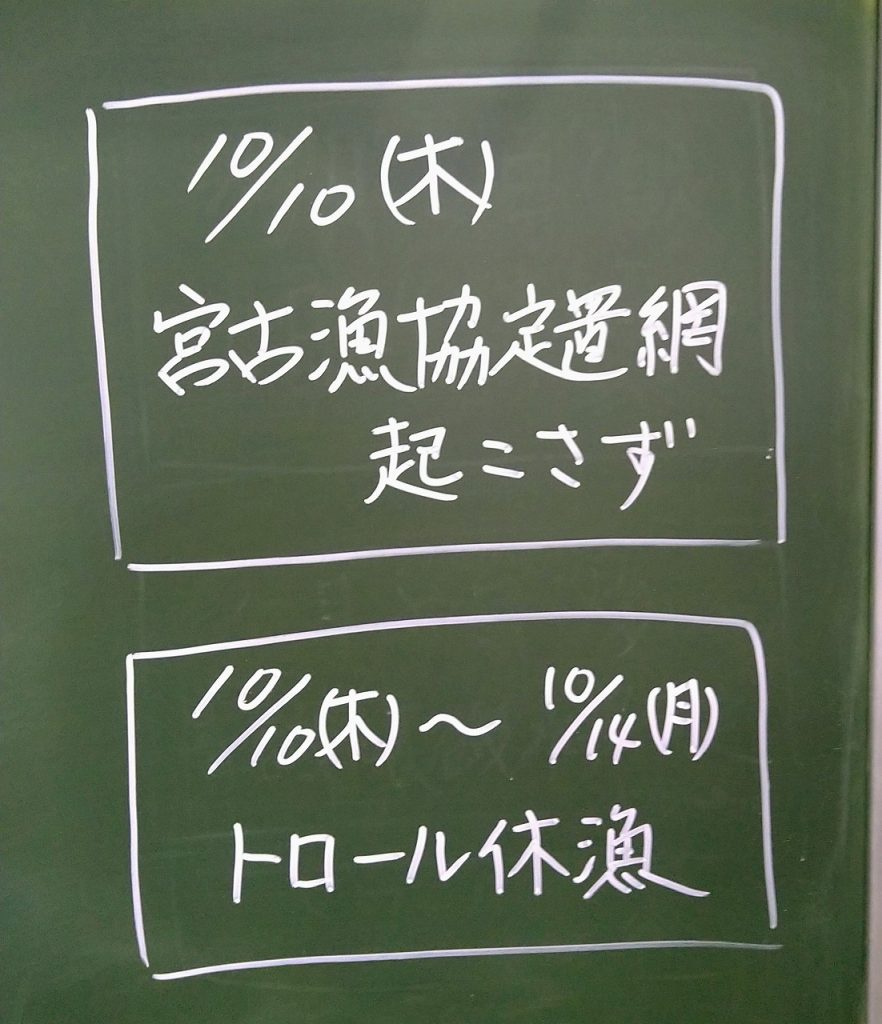 10/10(木)
宮古漁協定置網
起こさず
10/10(木)〜10/14(月)
トロール休漁